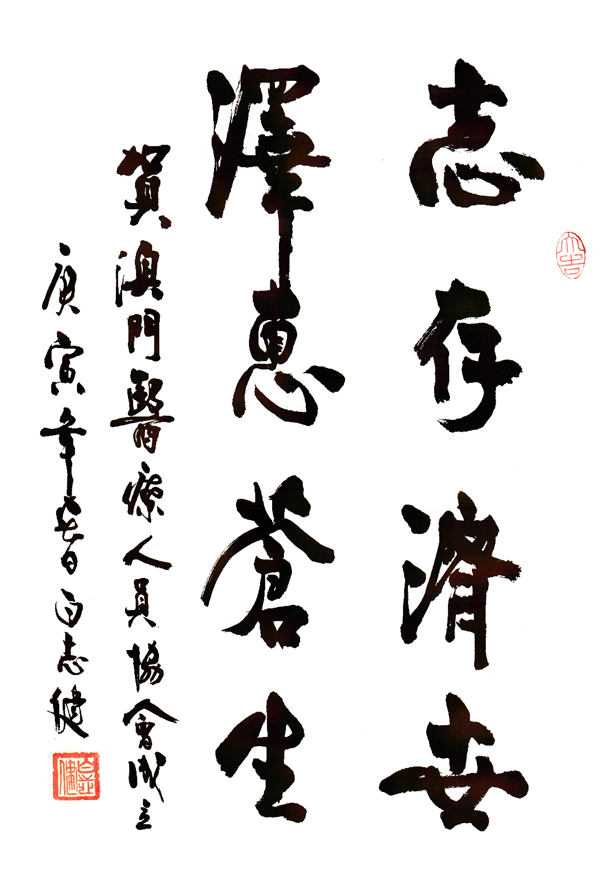 志存濟世
澤惠蒼生
賀澳門醫療人員協會成立
庚寅年春日白志健